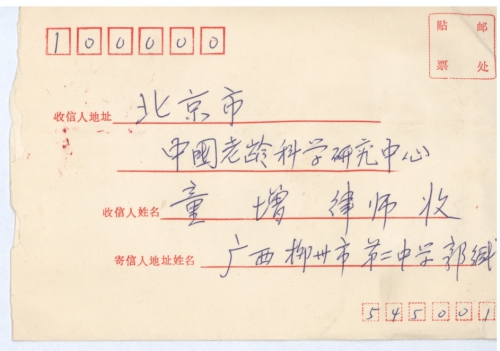 100000
贴 邮
票 处
收信人地址 北京市
中國老龄科学研究中心
收信人姓名 童增律师收
寄信人地址姓名 广西柳州市第二中学郭
545001